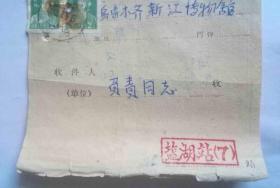 乌鲁木齐新江博物舘
门牌
收件人
(单位)
负责同志
收
盐湖站(7)
站